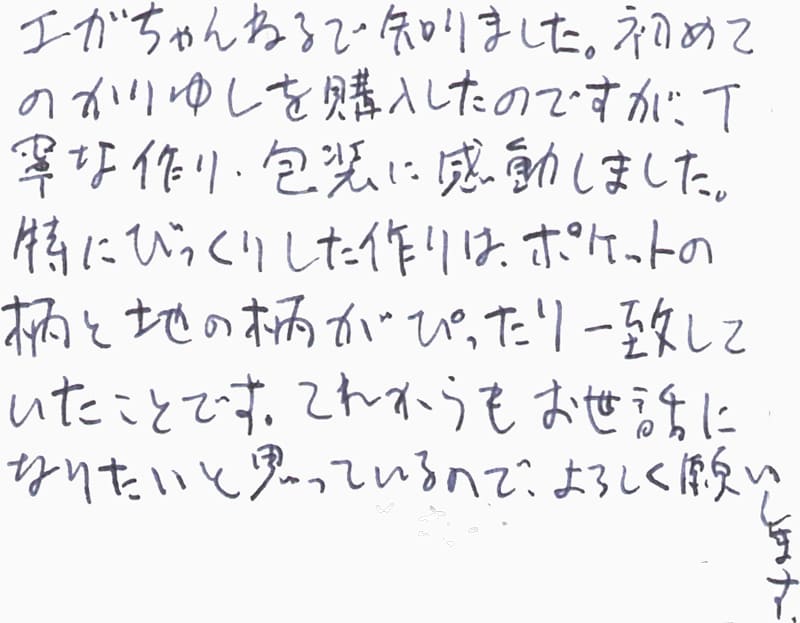 エガちゃんねるで知りました。初めて
のかりゆしを購入したのですが、丁
寧な作り・包装に感動しました。
特にびっくりした作りは、ポケットの
柄と地の柄がぴったり一致して
いたことです。これからもお世話に
なりたいと思っているので、よろしく願い
します。